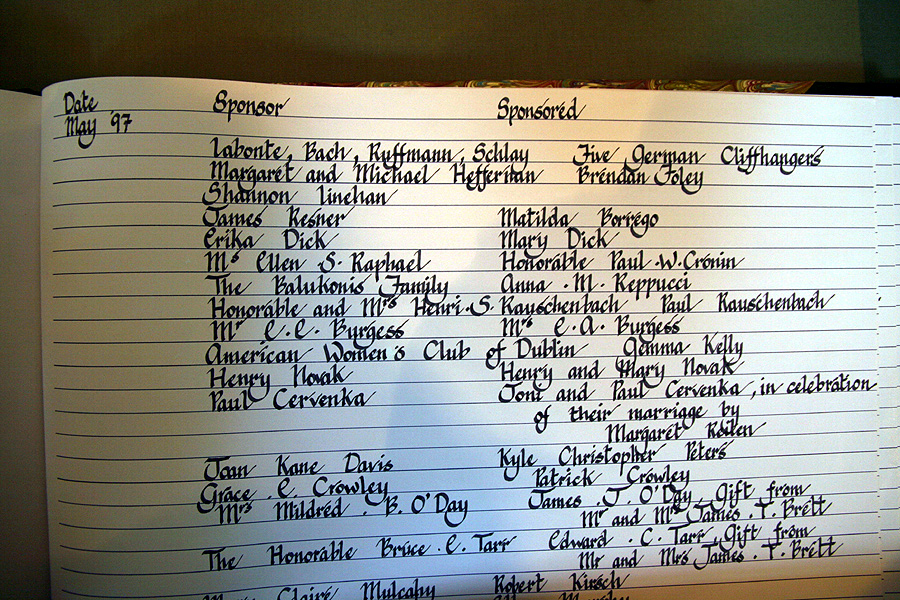 Date Sponsor Sponsored
May '97
Labonte, Bach, Ruffmann, Schlay Five German Cliffhangers
Margaret and Michael Heffernan Brendan Foley
Shannon Linehan
James Resner Matilda Borrego
Erika Dick Mary Dick
Ms Ellen S. Raphael Honorable Paul W. Cronin
The Balukonis Family Anna M. Reppucci
Honorable and Mrs Henri S. Rauschenbach Paul Rauschenbach
Mr E.E. Burgess Mrs E.A. Burgess
American Women's Club of Dublin Gemma Kelly
Henry Novak Henry and Mary Novak
Paul Cervenka Toni and Paul Cervenka, in celebration
of their marriage by
Margaret
Joan Kane Davis Kyle Christopher Peters
Grace E. Crowley Patrick Crowley
Mrs Mildred B. O'Day James J. O'Day, Gift from
Mr and Mrs James T. Brett
The Honorable Bruce E. Tarr Edward C. Tarr, Gift from
Mr and Mrs James T. Brett
Claire Mulcahy Robert Kirsch